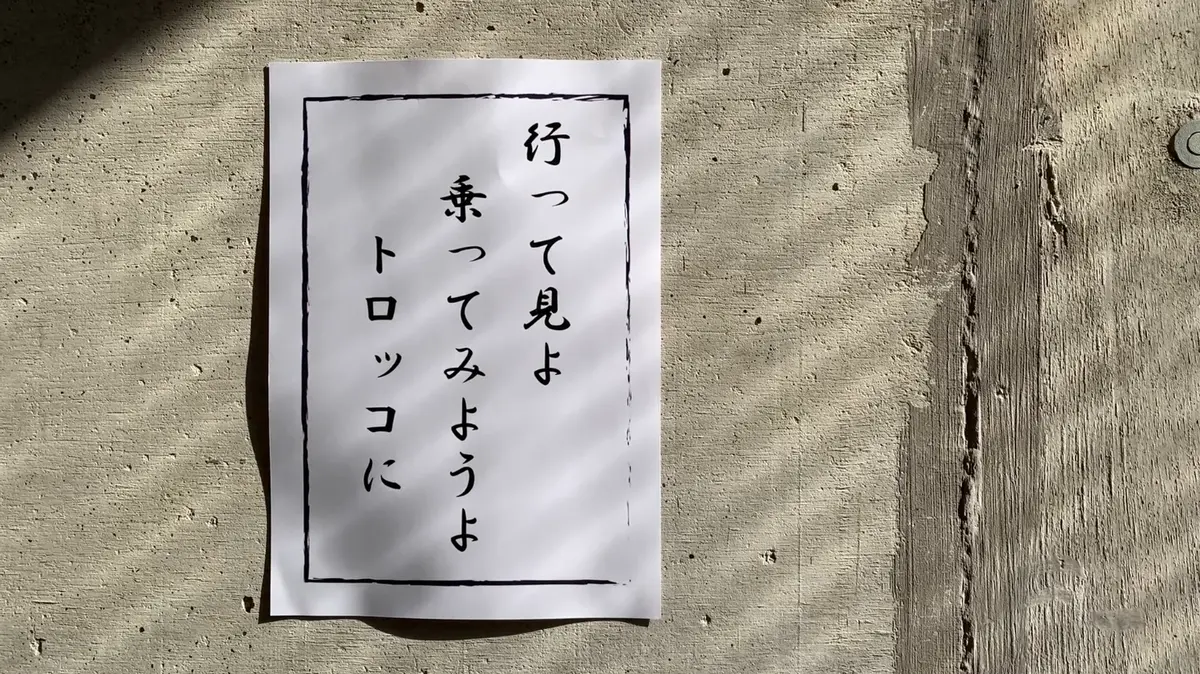 行って見よ
乗ってみようよ
トロッコに